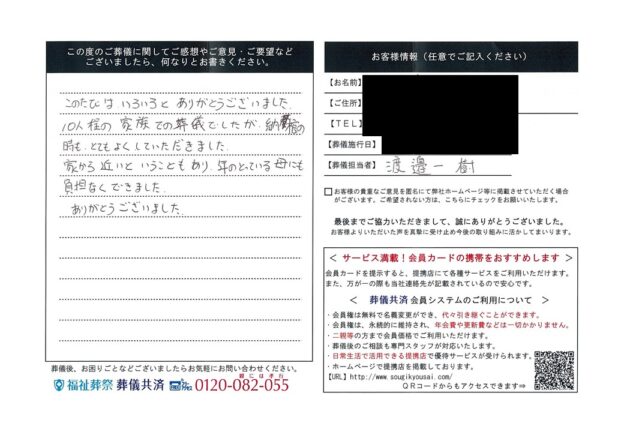 この度のご葬儀に関してご感想やご意見・ご要望など
ございましたら、何なりとお書きください。
このたびは いろいろと ありがとうございました。
10人程の 家族での葬儀でしたが、納棺の
時も とてもよくしていただきました。
家から近いと いうこともあり、年のとっている 母にも
負担なくできました。
ありがとうございました。
葬儀後、お困りごとなどございましたらお気軽にお問い合わせください。
福祉葬祭 葬儀共済 0120-082-055
親には孝行
お客様情報（任意でご記入ください）
【お名前】
【ご住所】
【TEL】
【葬儀施行日】
【葬儀担当者】 渡邊一樹
□お客様の貴重なご意見を匿名にて弊社ホームページ等に掲載させていただく場合
がございます。ご希望されない方は、こちらにチェックをお願いいたします。
最後までご協力いただきまして、誠にありがとうございます。
お客様よりいただいた声を真摯に受け止め今後の取り組みに活かしてまいります。
＜ サービス満載！会員カードの携帯をおすすめします ＞
会員カードを提示すると、提携店にて各種サービスをご利用いただけます。
また、万が一の際も当社連絡先が記載されているので安心です。
＜ 葬儀共済 会員システムのご利用について ＞
・会員権は無料で名義変更ができ、代々引き継ぐことができます。
・会員権は、永続的に維持され、年会費や更新費などは一切かかりません。
・二親等の方まで会員価格でご利用いただけます。
・葬儀後のご相談も専門スタッフが対応いたします。
・日常生活で活用できる提携店で優待サービスが受けられます。
・ホームページで提携店を掲載しております。
【URL】http://www.sougikyousai.com/
QRコードからもアクセスできます⇒